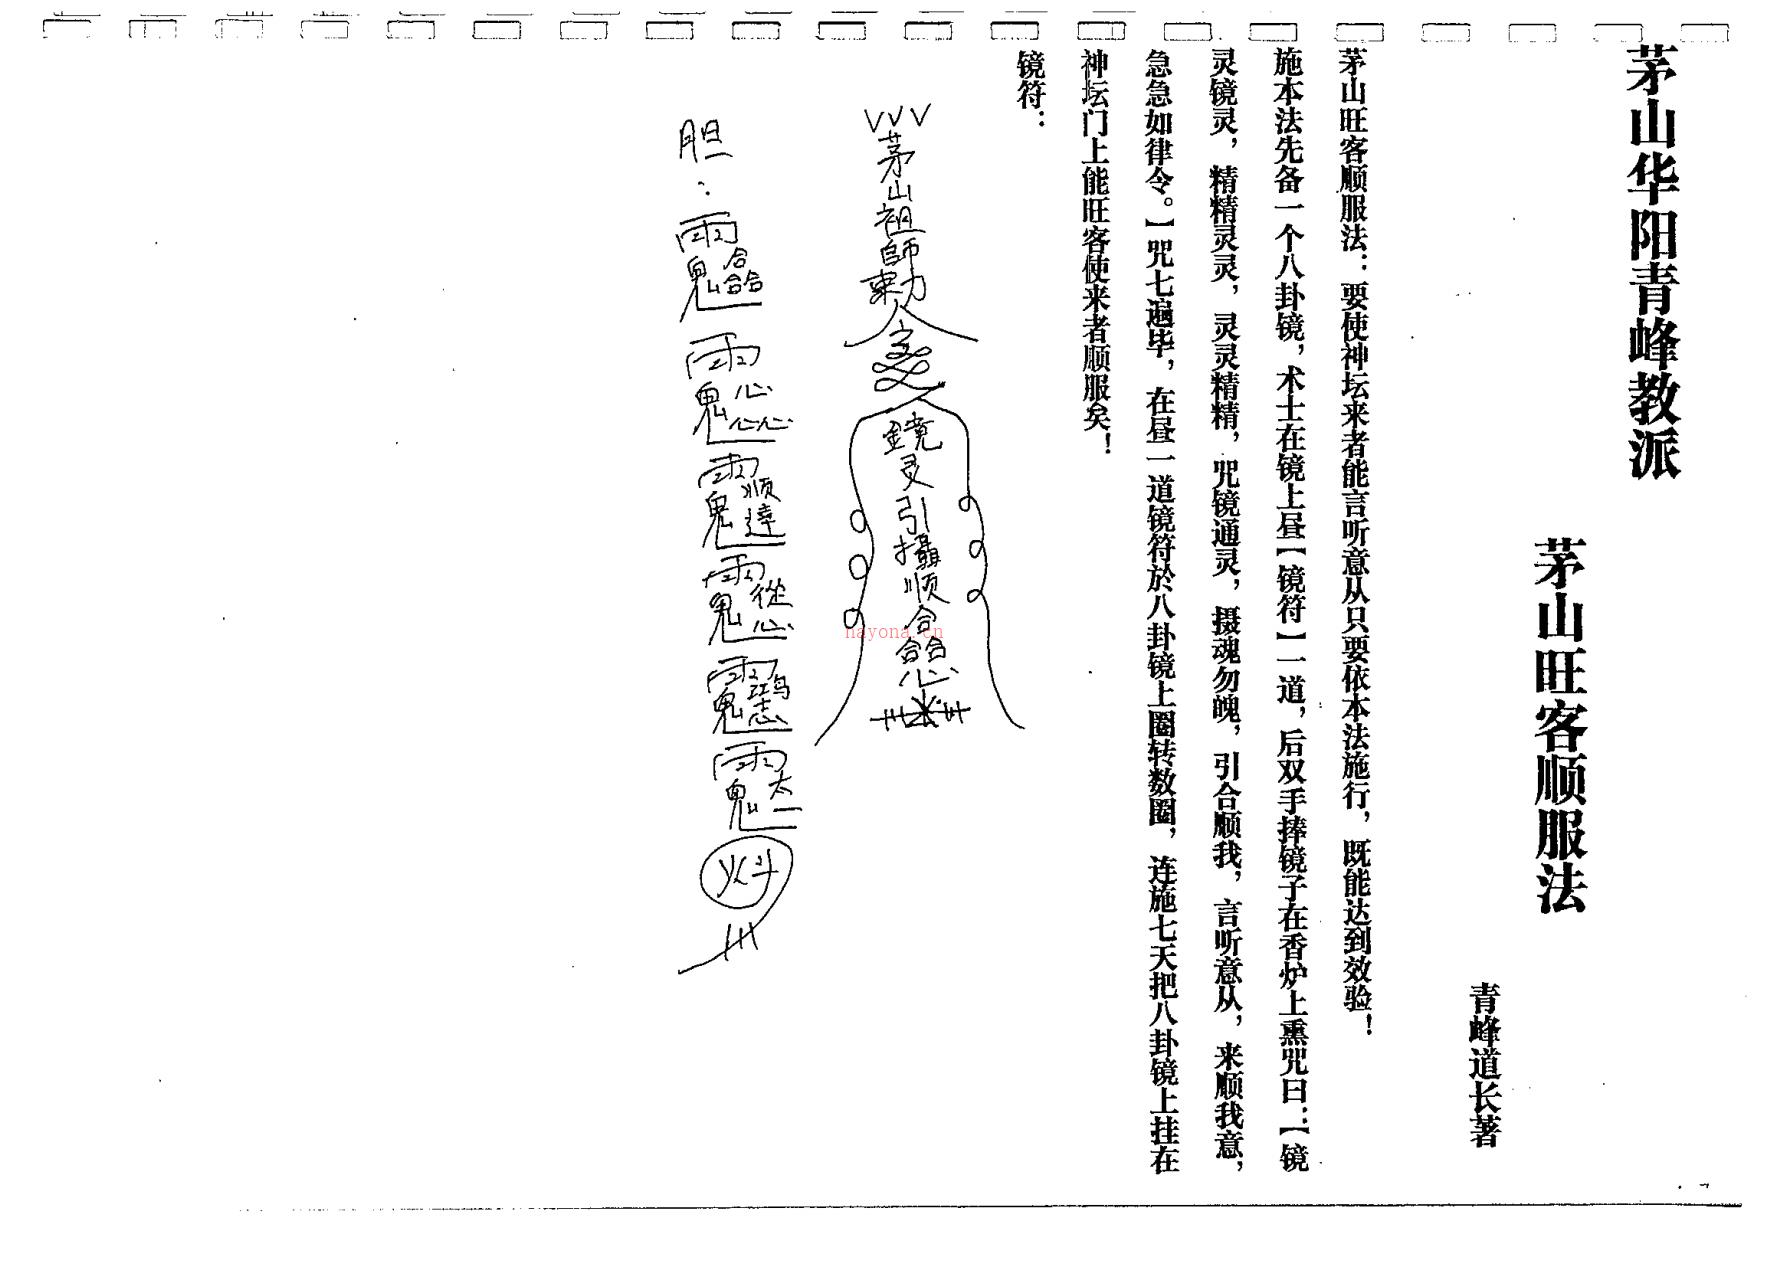 茅山华阳青峰教派
茅山旺客顺服法
青峰道长著
茅山旺客顺服法：要使神坛来者能言听意从只要依本法施行，既能达到效验！
施本法先备一个八卦镜，术士在镜上昼【镜符】一道，后双手捧镜子在香炉上熏咒曰：【镜
灵镜灵，精精灵灵，灵灵精精，咒镜通灵，摄魂勿魄，引合顺我，言听意从，来顺我意，
急急如律令。】咒七遍毕，在昼一道镜符於八卦镜上圈转数圈，连施七天把八卦镜上挂在
神坛门上能旺客使来者顺服矣！
镜符：
茅山祖師敕
鏡灵引攝顺合合合心
胆：
nayona.cn